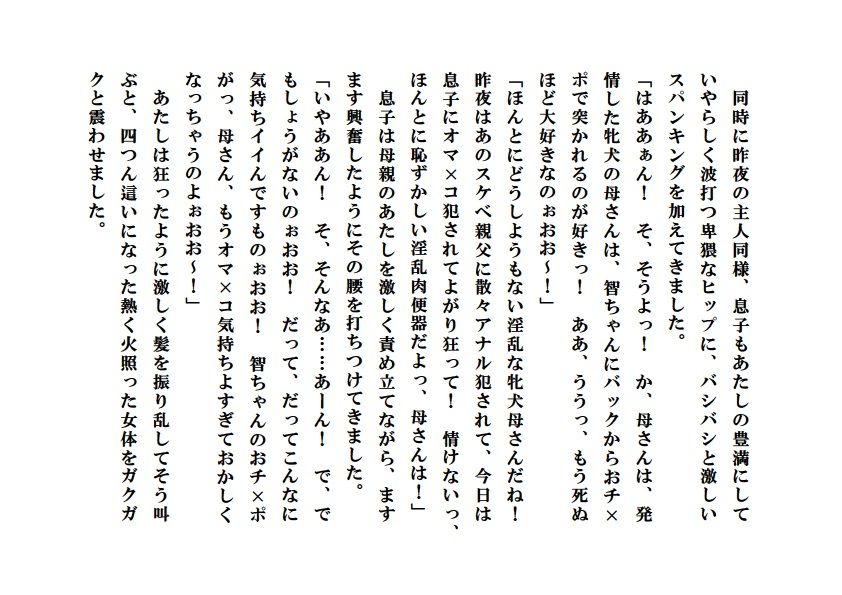 同時に昨夜の主人同様、息子もあたしの豊満にして
いやらしく波打つ卑猥なヒップに、バシバシと激しい
スパンキングを加えてきました。
「はああぁん！　そ、そうよっ！　か、母さんは、発
情した牝犬の母さんは、智ちゃんにバックからおチ×
ポで突かれるのが好きっ！　ああ、ううっ、もう死ぬ
ほど大好きなのぉおお〜！」
「ほんとにどうしようもない淫乱な牝犬母さんだね！
昨夜はあのスケベ親父に散々アナル犯されて、今日は
息子にオマ×コ犯されてよがり狂って！　情けないっ、
ほんとに恥ずかしい淫乱肉便器だよっ、母さんは！」
　息子は母親のあたしを激しく責め立てながら、ます
ます興奮したようにその腰を打ちつけてきました。
「いやああん！　そ、そんなあ……あーん！　で、で
もしょうがないのぉおお！　だって、だってこんなに
気持ちイイんですものぉおお！　智ちゃんのおチ×ポ
がっ、母さん、もうオマ×コ気持ちよすぎておかしく
なっちゃうのよぉおお〜！」
　あたしは狂ったように激しく髪を振り乱してそう叫
ぶと、四つん這いになった熱く火照った女体をガクガ
クと震わせました。